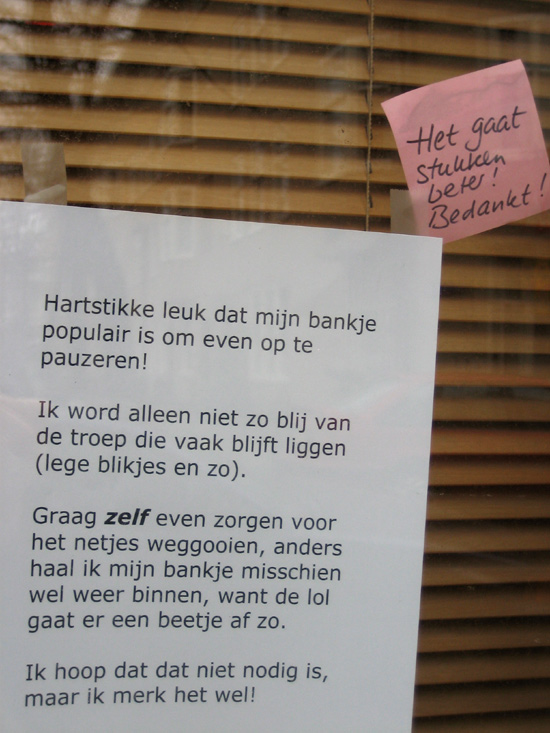 Het gaat
stukken
beter!
Bedankt!
Hartstikke leuk dat mijn bankje
populair is om even op te
pauzeren!
Ik word alleen niet zo blij van
de troep die vaak blijft liggen
(lege blikjes en zo).
Graag zelf even zorgen voor
het netjes weggooien, anders
haal ik mijn bankje misschien
wel weer binnen, want de lol
gaat er een beetje af zo.
Ik hoop dat dat niet nodig is,
maar ik merk het wel!